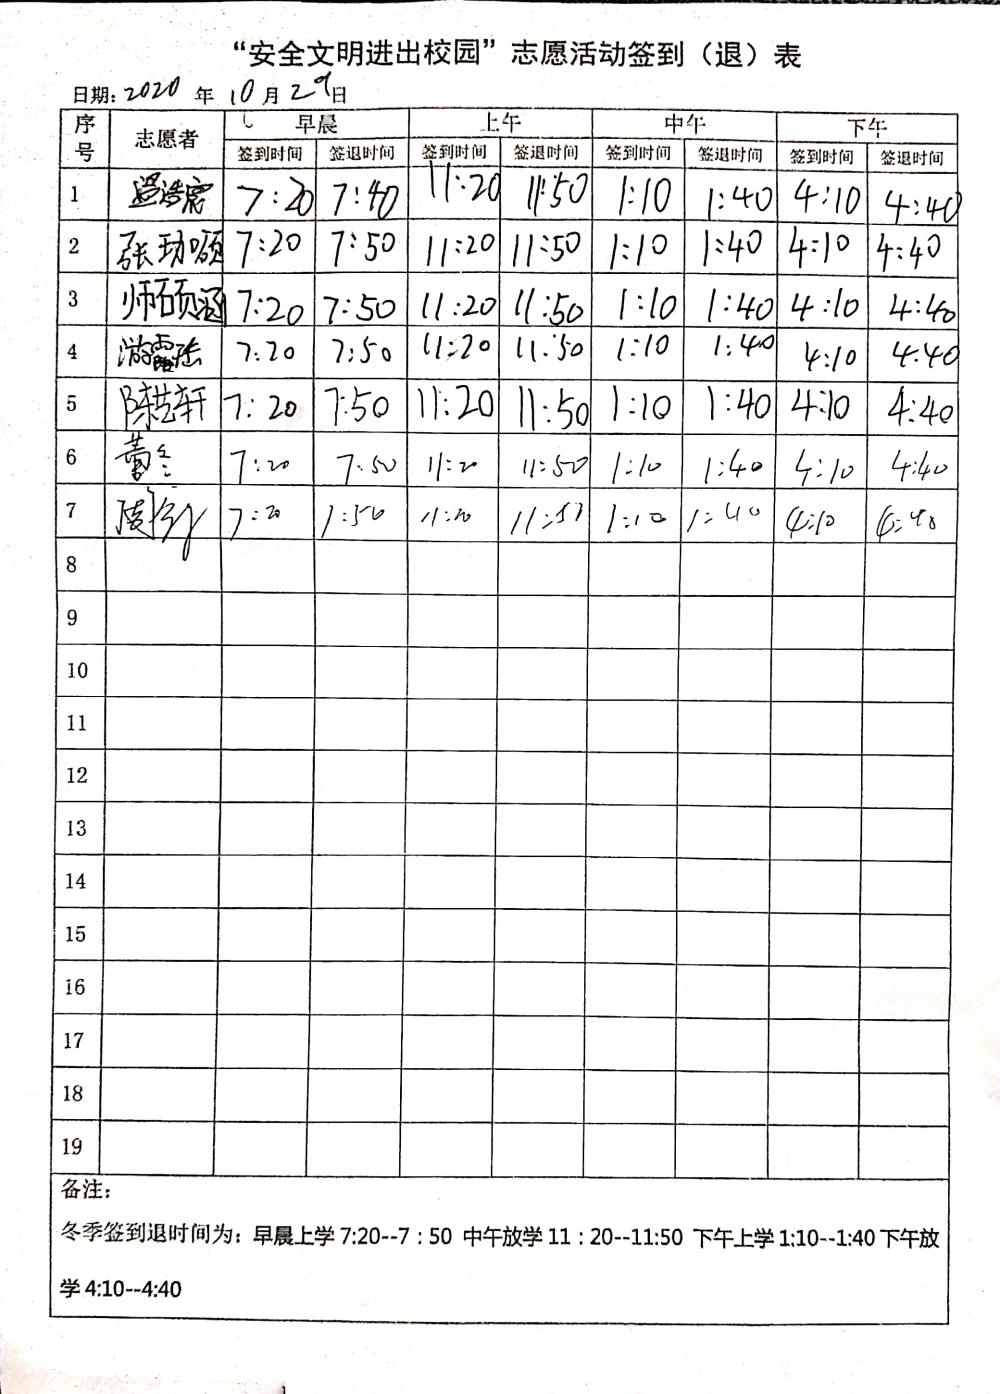 “安全文明进出校园”志愿活动签到（退）表
日期: 2020 年 10 月 29 日
序号 志愿者 早晨 上午 中午 下午
签到时间 签退时间 签到时间 签退时间 签到时间 签退时间 签到时间 签退时间
1 7:20 7:40 11:20 11:50 1:10 1:40 4:10 4:40
2 7:20 7:50 11:20 11:50 1:10 1:40 4:10 4:40
3 师硕涵 7:20 7:50 11:20 11:50 1:10 1:40 4:10 4:40
4 7:20 7:50 11:20 11:50 1:10 1:40 4:10 4:40
5 陈艺轩 7:20 7:50 11:20 11:50 1:10 1:40 4:10 4:40
6 7:20 7:50 11:20 11:50 1:10 1:40 4:10 4:40
7 7:20 1:50 11:20 11:51 1:10 1:40 4:10
8
9
10
11
12
13
14
15
16
17
18
19
备注:
冬季签到退时间为: 早晨上学 7:20--7：50 中午放学 11：20--11:50 下午上学 1:10--1:40 下午放
学 4:10--4:40